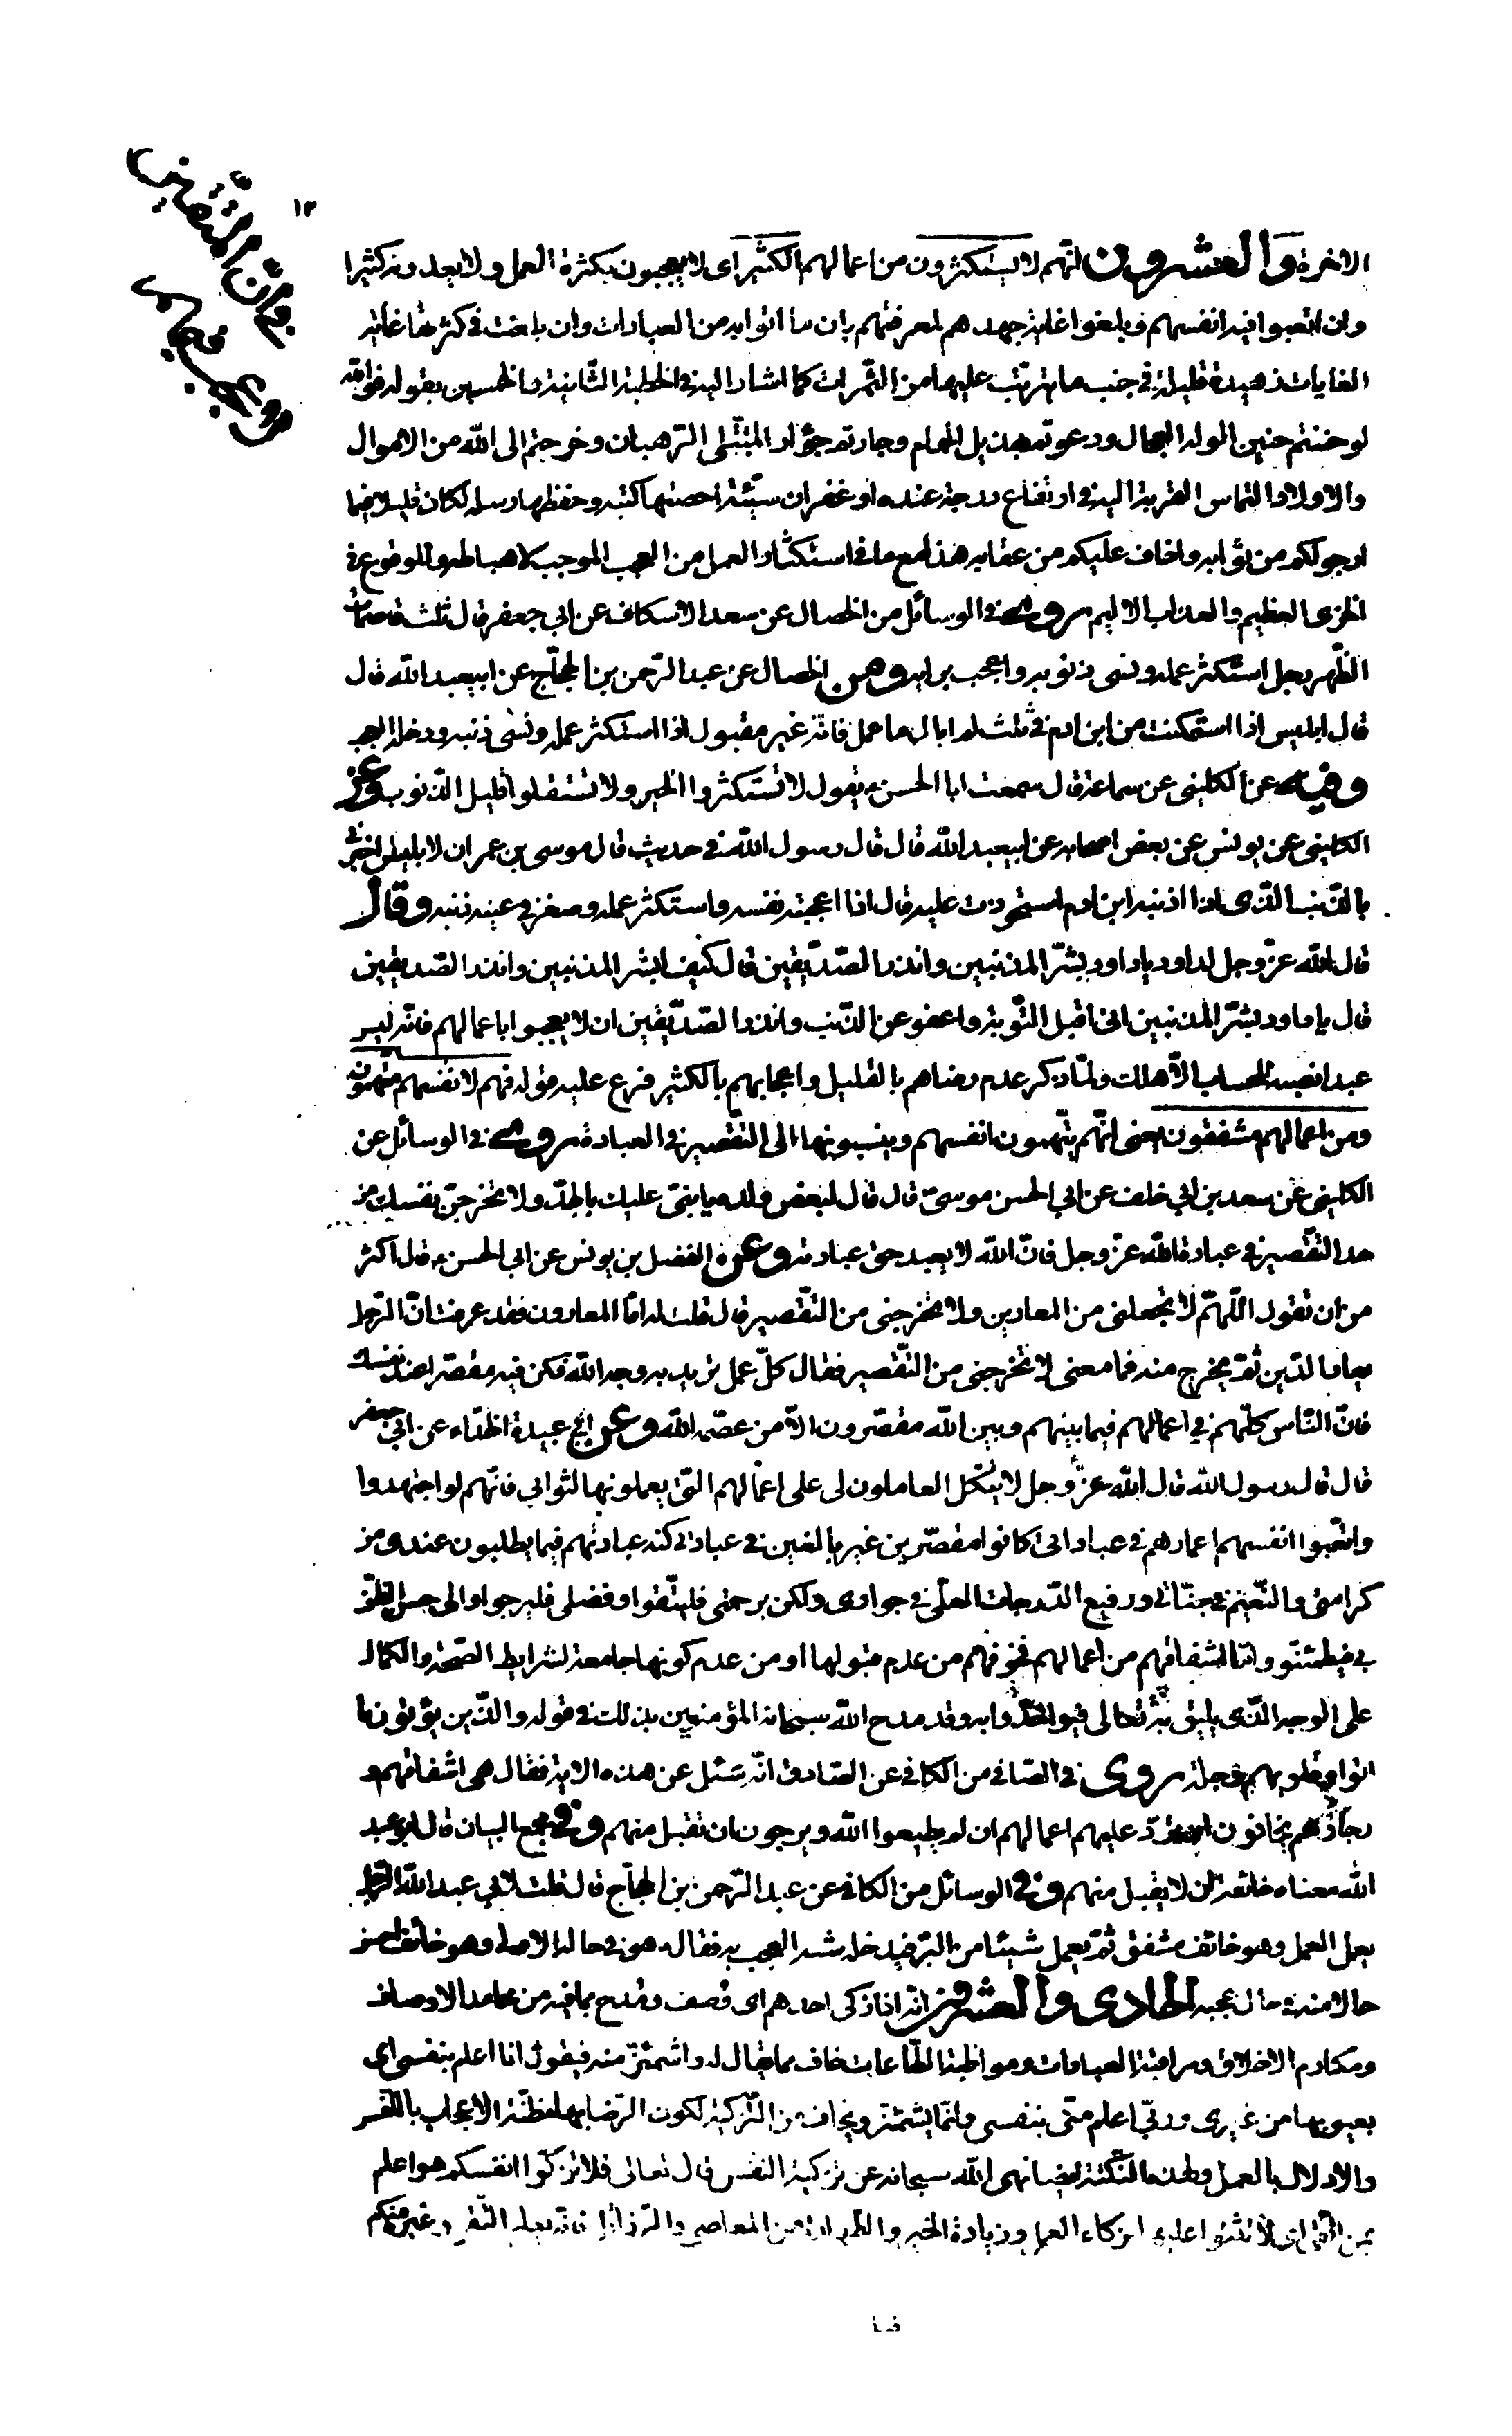 ١٣
الاخرة والعشرون انّهم لا يستكثرون من اعمالهم الكثير اى لا يعجبون بكثرة العمل ولا يعدونه كثيرا
وان اتعبوا فيه انفسهم وبلغوا غاية جهدهم لمعرفتهم بان ما اتوا به من العبادات وان بلغت فى كثرتها غاية
الغايات زهيدة قليلة فى جنب ما يترتّب عليها من الثّمرات كما اشار اليه فى الخطبة الثّانية والخمسين بقوله فو الله
لو حننتم حنين الوله العجال ودعوتم بهديل الحمام وجارتم جؤار المتبتّلى الرّهبان وخرجتم الى الله من الاموال
والاولاد التماس القربة اليه فى ارتفاع درجة عنده او غفران سيّئة احصتها كتبه وحفظها رسله لكان قليلا فيما
ارجو لكم من ثوابه واخاف عليكم من عقابه هذا مع ما فى استكثار العمل من العجب الموجب لاحباطه والوقوع فى
الخزى العظيم والعذاب الاليم روى فى الوسائل من الخصال عن سعد الاسكاف عن ابى جعفر قال ثلث قاصمات
الظّهر رجل استكثر عمله ونسى ذنوبه واعجب برايه ومن الخصال عن عبد الرّحمن بن الحجّاج عن ابيعبد الله قال
قال ابليس اذا استمكنت من ابن ادم فى ثلث لم ابال ما عمل فانّه غير مقبول اذا استكثر عمله ونسى ذنبه ودخله العجب
وفيه عن الكلينى عن سماعة قال سمعت ابا الحسن يقول لا تستكثروا الخير ولا تستقلوا قليل الذّنوب وعن
الكلينى عن يونس عن بعض اصحابه عن ابيعبد الله قال قال رسول الله فى حديث قال موسى بن عمران لابليس اخبرنى
بالذّنب الّذى اذا اذنبه ابن ادم استحوذت عليه قال اذا اعجبته نفسه واستكثر عمله وصغر فى عينه ذنبه وقال
قال الله عزّ وجل لداود يا داود بشّر المذنبين وانذر الصّدّيقين قال كيف ابشر المذنبين وانذر الصّديقين
قال يا داود بشّر المذنبين انى اقبل التّوبة واعفو عن الذّنب وانذر الصّدّيقين ان لا يعجبوا باعمالهم فانّه ليس
عبد انصبه للحساب الّا هلك ولمّا ذكر عدم رضاهم بالقليل واعجابهم بالكثير فرع عليه قوله فهم لانفسهم متّهمون
ومن اعمالهم مشفقون يعنى انّهم يتّهمون انفسهم وينسبونها الى التّقصير فى العبادة روى فى الوسائل عن
الكلينى عن سعد بن ابى خلف عن ابى الحسن موسى قال قال لبعض ولده يا بنىّ عليك بالجدّ ولا تخرجنّ نفسك من
حد التّقصير فى عبادة الله عزّ وجل فانّ الله لا يعبد حق عبادته وعن الفضل بن يونس عن ابى الحسن قال اكثر
من ان تقول اللّهمّ لا تجعلنى من المعارين ولا تخرجنى من التّقصير قال قلت له امّا المعارون فقد عرفت انّ الرّجل
يعار الدّين ثمّ يخرج منه فما معنى لا تخرجنى من التّقصير فقال كلّ عمل تريد به وجه الله فكن فيه مقصّرا عند نفسك
فانّ النّاس كلّهم فى اعمالهم فيما بينهم وبين الله مقصّرون الّا من عصمه الله وعن ابى عبيدة الحذّاء عن ابى جعفر
قال قال رسول الله قال الله عزّ وجل لا يتّكل العاملون لى على اعمالهم الّتى يعملونها لثوابى فانّهم لو اجتهدوا
واتعبوا انفسهم اعمارهم فى عبادتى كانوا مقصّرين غير بالغين فى عبادتهم كنه عبادتهم فيما يطلبون عندى من
كرامتى والنّعيم فى جنّاتى ورفيع الدّرجات العلّى فى جوارى ولكن برحمتى فليثقوا وفضلى فليرجوا والى حسن الظنّ
بى فيطمئنّوا وامّا اشفاقهم من اعمالهم فخوفهم من عدم قبولها او من عدم كونها جامعة لشرايط الصّحّة والكمال
على الوجه الّذى يليق به تعالى فيؤاخذوا به وقد مدح الله سبحانه المؤمنين بذلك فى قوله والّذين يؤتون ما
اتوا وقلوبهم وجلة روى فى الصّافى من الكافى عن الصّادق انّه سئل عن هذه الاية فقال هى اشفاقهم و
رجاؤهم يخافون ان تردّ عليهم اعمالهم ان لم يطيعوا الله ويرجون ان تقبل منهم وفى مجمع البيان قال ابو عبد
الله معناه خائفة ان لا يقبل منهم وفى الوسائل من الكافى عن عبد الرّحمن بن الحجّاج قال قلت لابى عبد الله الرّجل
يعمل العمل وهو خائف مشفق ثمّ يعمل شيئا من البرّ فيدخله شبه العجب به فقال هو فى حاله الاولى وهو خائف احسن
حالا منه فى حال عجبه الحادى والعشرون انّه اذا زكى احدهم اى وصف ومدح بما فيه من محامد الاوصاف
ومكارم الاخلاق ومراقبة العبادات ومواظبة الطّاعات خاف مما يقال له واشمئزّ منه فيقول انا اعلم بنفسى اى
بعيوبها من غيرى وربّى اعلم منّى بنفسى وانّما يشمئز ويخاف من التّزكية لكون الرّضا بها مظنّة الاعجاب بالنّفس
والادلال بالعمل ولهذه النّكتة ايضا نهى الله سبحانه عن تزكية النفس قال تعالى فلا تزكّوا انفسكم هو اعلم
بمن اتّقى اى لا تثنوا عليها بزكاء العمل وزيادة الخير والطّهارة من المعاصى والرّذائل فانّه يعلم التّقى وغيره منكم